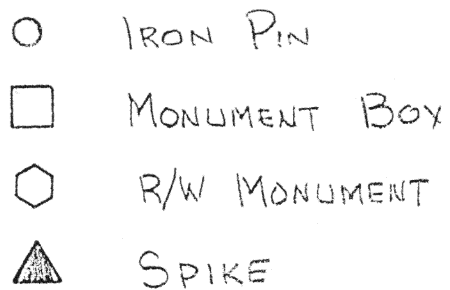 IRON PIN
MONUMENT BOX
R/W MONUMENT
SPIKE